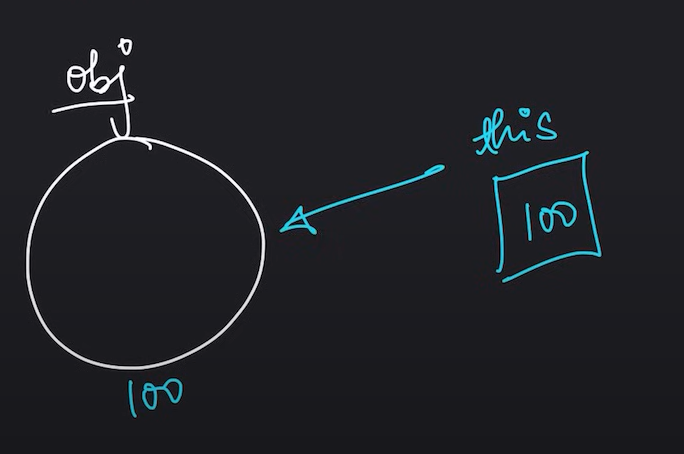 obj
this
100
100